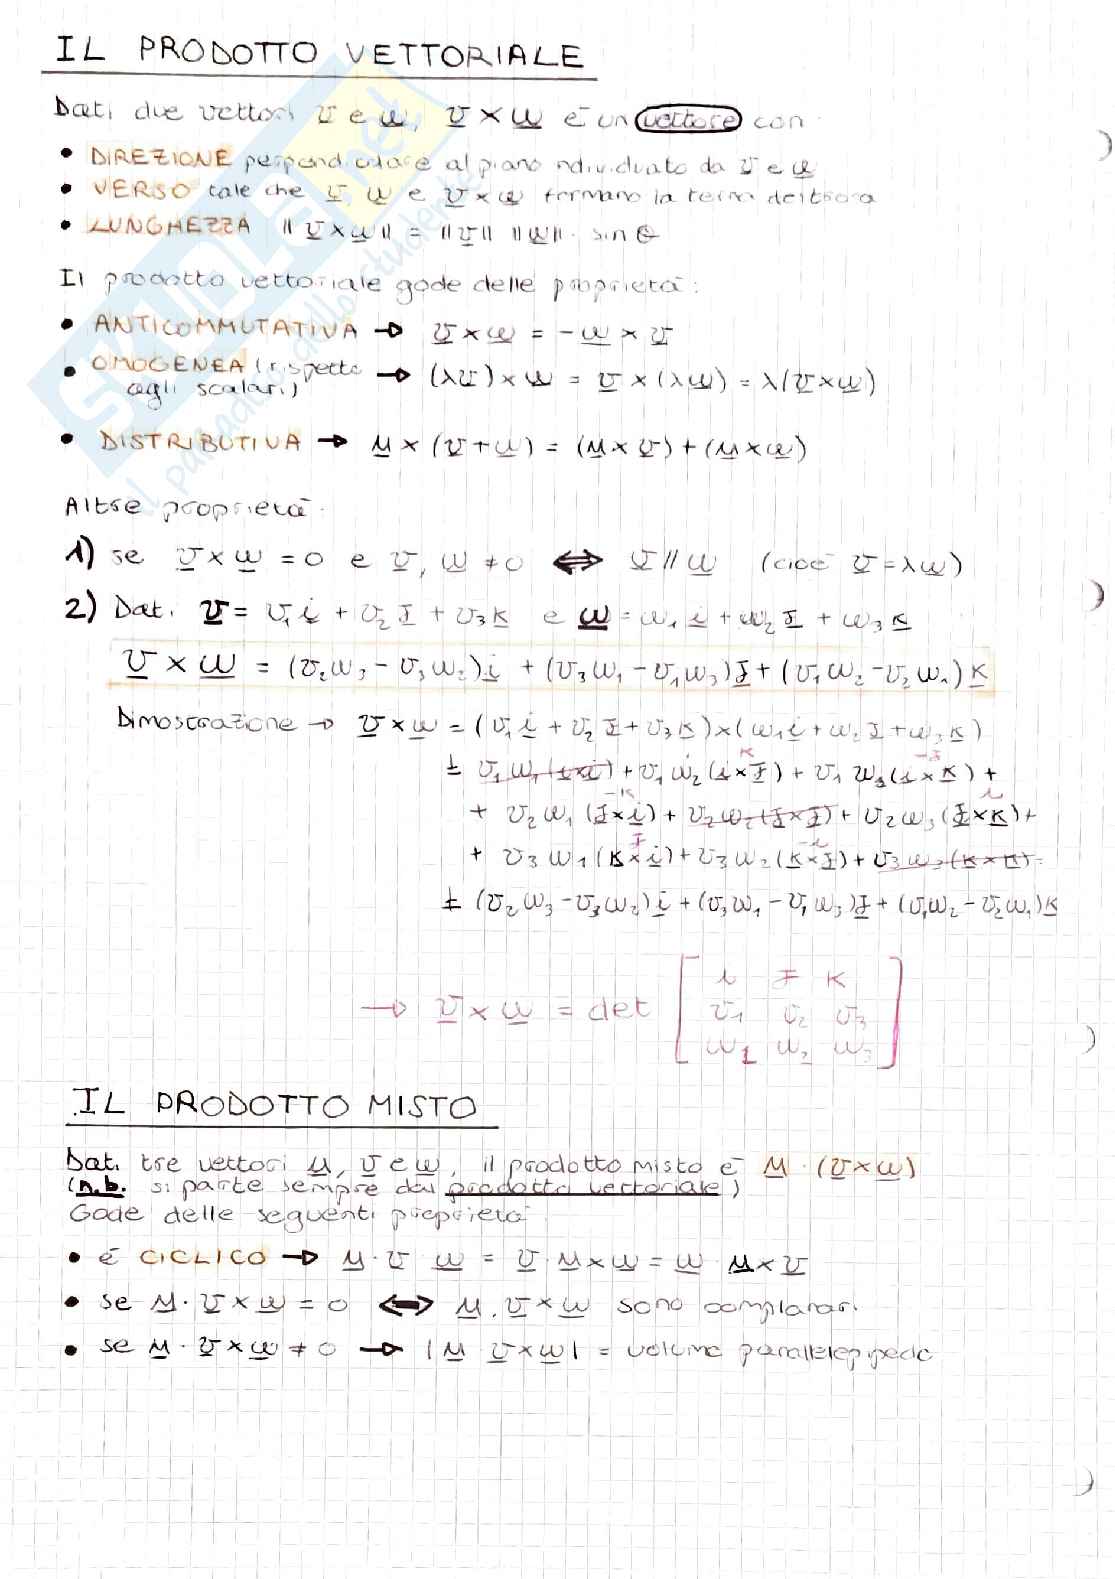 IL PRODOTTO VETTORIALE
Dati due vettori v e w, v × w è un vettore con
• DIREZIONE perpendicolare al piano individuato da v e w
• VERSO tale che v, w e v × w formano la terna destrora
• LUNGHEZZA ||v × w|| = ||v|| ||w|| · sin θ
Il prodotto vettoriale gode delle proprietà:
• ANTICOMMUTATIVA → v × w = -w × v
• OMOGENEA (rispetto agli scalari) → (λv) × w = v × (λw) = λ(v × w)
• DISTRIBUTIVA → u × (v + w) = (u × v) + (u × w)
Altre proprietà
1) se v × w = 0 e v, w ≠ 0 ⟺ v // w (cioè v = λw)
2) Dati v = v₁i + v₂J + v₃K e w = w₁i + w₂J + w₃K
v × w = (v₂w₃ - v₃w₂)i + (v₃w₁ - v₁w₃)J + (v₁w₂ - v₂w₁)K
Dimostrazione → v × w = (v₁i + v₂J + v₃K) × (w₁i + w₂J + w₃K)
K -J
= v₁w₁(i×i) + v₁w₂(i×J) + v₁w₃(i×K) +
-K i
+ v₂w₁(J×i) + v₂w₂(J×J) + v₂w₃(J×K) +
J -i
+ v₃w₁(K×i) + v₃w₂(K×J) + v₃w₃(K×K) =
= (v₂w₃ - v₃w₂)i + (v₃w₁ - v₁w₃)J + (v₁w₂ - v₂w₁)K
i J K
→ v × w = det [ v₁ v₂ v₃ ]
w₁ w₂ w₃
IL PRODOTTO MISTO
Dati tre vettori u, v e w, il prodotto misto è u · (v × w)
(n.b. si parte sempre dal prodotto vettoriale)
Gode delle seguenti proprietà
• è CICLICO → u · v w = v · u × w = w u × v
• se u · v × w = 0 ⟺ u, v × w sono complanari
• se u · v × w ≠ 0 → |u v × w| = volume parallelepipedo
SKUOLA.net
il paradiso dello studente